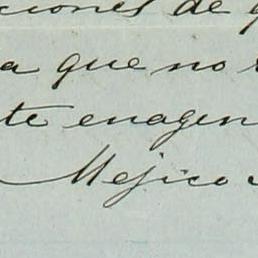 ciones de
a que no
te enagen
Mejico